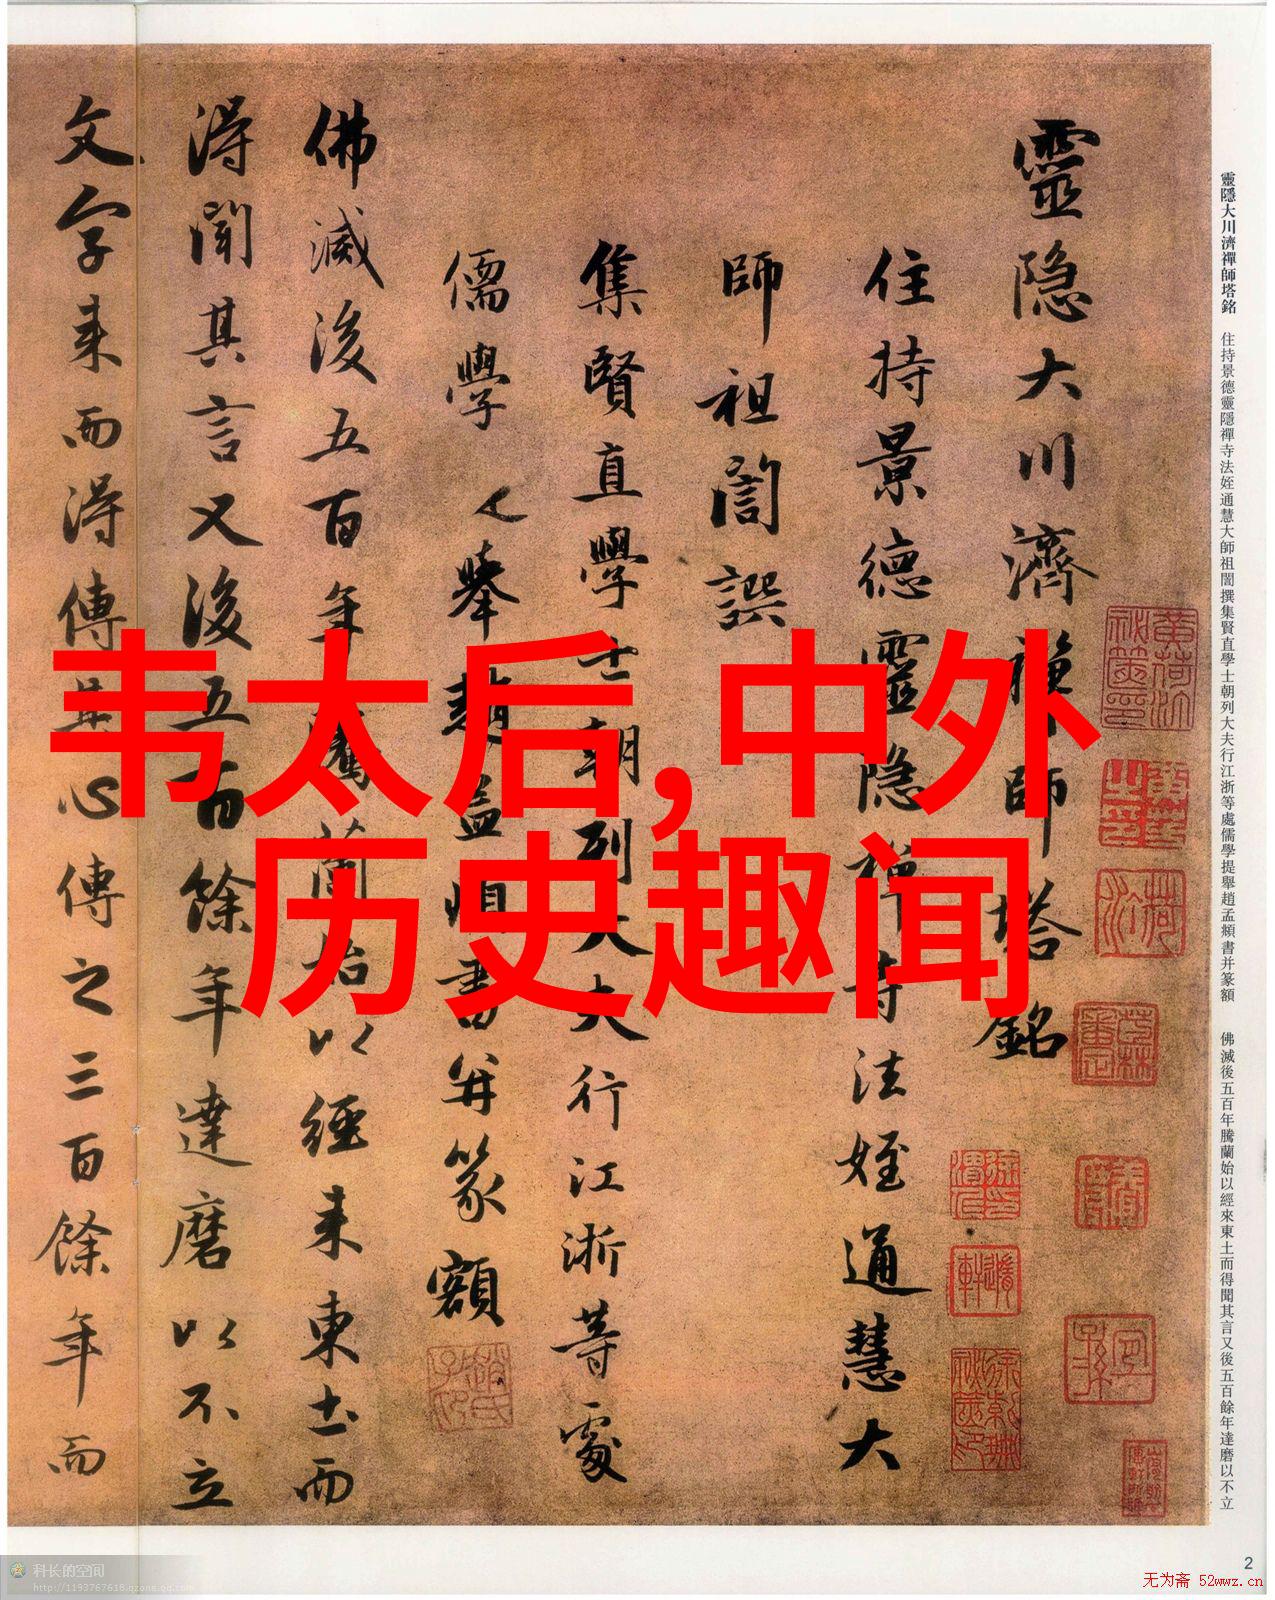 靈隱大川濟禪師塔銘
住持景德靈隱禪寺法姪通慧大
師祖誾撰
集賢直學士朝列大夫行江浙等處
儒學提舉趙孟頫書并篆額
佛滅後五百年騰蘭始以經来東土而
得聞其言又後五百餘年達磨以不立
文字来而得傳其心傳之三百餘年而
韦太后,中外
历史趣闻
靈隱大川濟禪師塔銘 住持景德靈隱禪寺法姪通慧大師祖誾撰集賢直學士朝列大夫行江浙等處儒學提舉趙孟頫書并篆額 佛滅後五百年騰蘭始以經來東土而得聞其言又後五百餘年達磨以不立
2
科长的空间
http://1193767618.qzone.qq.com
无为斋 52wwz.cn